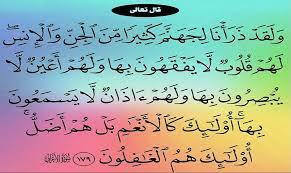 قال تعالى
وَلَقَدْ ذَرَأْنَا لِجَهَنَّمَ كَثِيرًا مِّنَ الْجِنِّ وَالْإِنسِ
لَهُمْ قُلُوبٌ لَّا يَفْقَهُونَ بِهَا وَلَهُمْ أَعْيُنٌ لَّا
يُبْصِرُونَ بِهَا وَلَهُمْ ءَاذَانٌ لَّا يَسْمَعُونَ
بِهَا أُوْلَٰئِكَ كَالْأَنْعَٰمِ بَلْ هُمْ أَضَلُّ
أُوْلَٰئِكَ هُمُ الْغَٰفِلُونَ ١٧٩